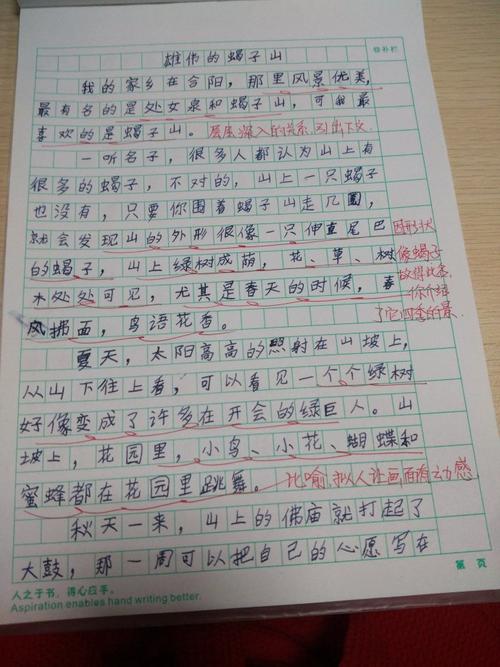 雄伟的蝎子山
修补栏
我的家乡在合阳，那里风景优美，
最有名的是处女泉和蝎子山，可我最
喜欢的是蝎子山。层层深入的关系，引出下文
一听名子，很多人都认为山上有
很多的蝎子，不对的，山上一只蝎子
也没有，只要你围着蝎子山走几圈，
就会发现山的外形很像一只伸直尾巴
因形状
的蝎子，山上绿树成荫，花、草、树
像蝎子
故得此名
木处处可见，尤其是春天的时候，春
你介绍
风拂面，鸟语花香。
了它四季的景
夏天，太阳高高的照射在山坡上，
从山下往上看，可以看见一个个绿树
好像变成了许多在开会的绿巨人。山
坡上，花园里，小鸟、小花、蝴蝶和
蜜蜂都在花园里跳舞。比喻拟人让画面有动感
秋天一来，山上的佛庙就打起了
大鼓，那一周可以把自己的心愿写在
第 页
人之于书，得心应手。
Aspiration enables hand writing better.